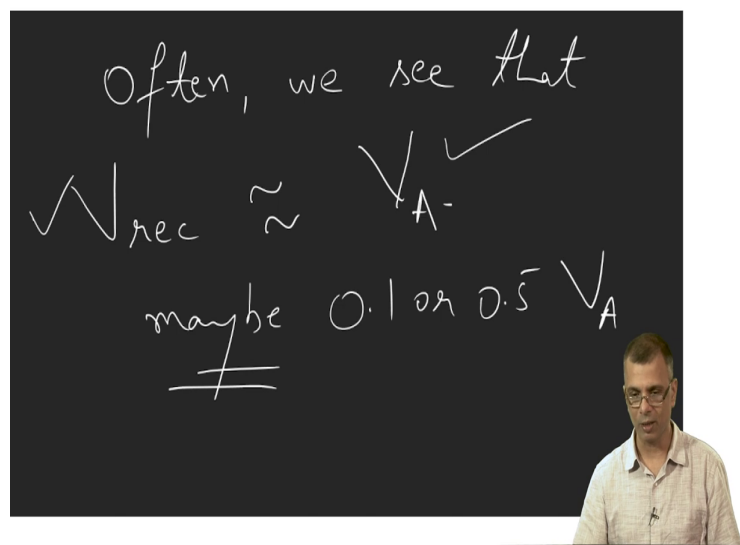 Often, we see that
V_rec ≈ V_A ✓
maybe 0.1 or 0.5 V_A